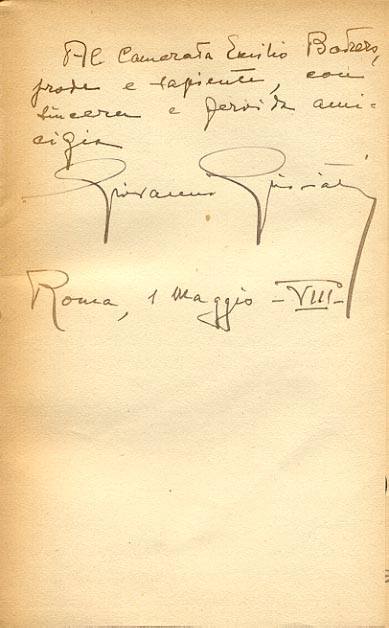 Al Camerata Emilio Bodrero,
prode e sapiente, con
sincera e fervida ami=
cizia
Giovanni Giuriati
Roma, 1 Maggio - VIII -